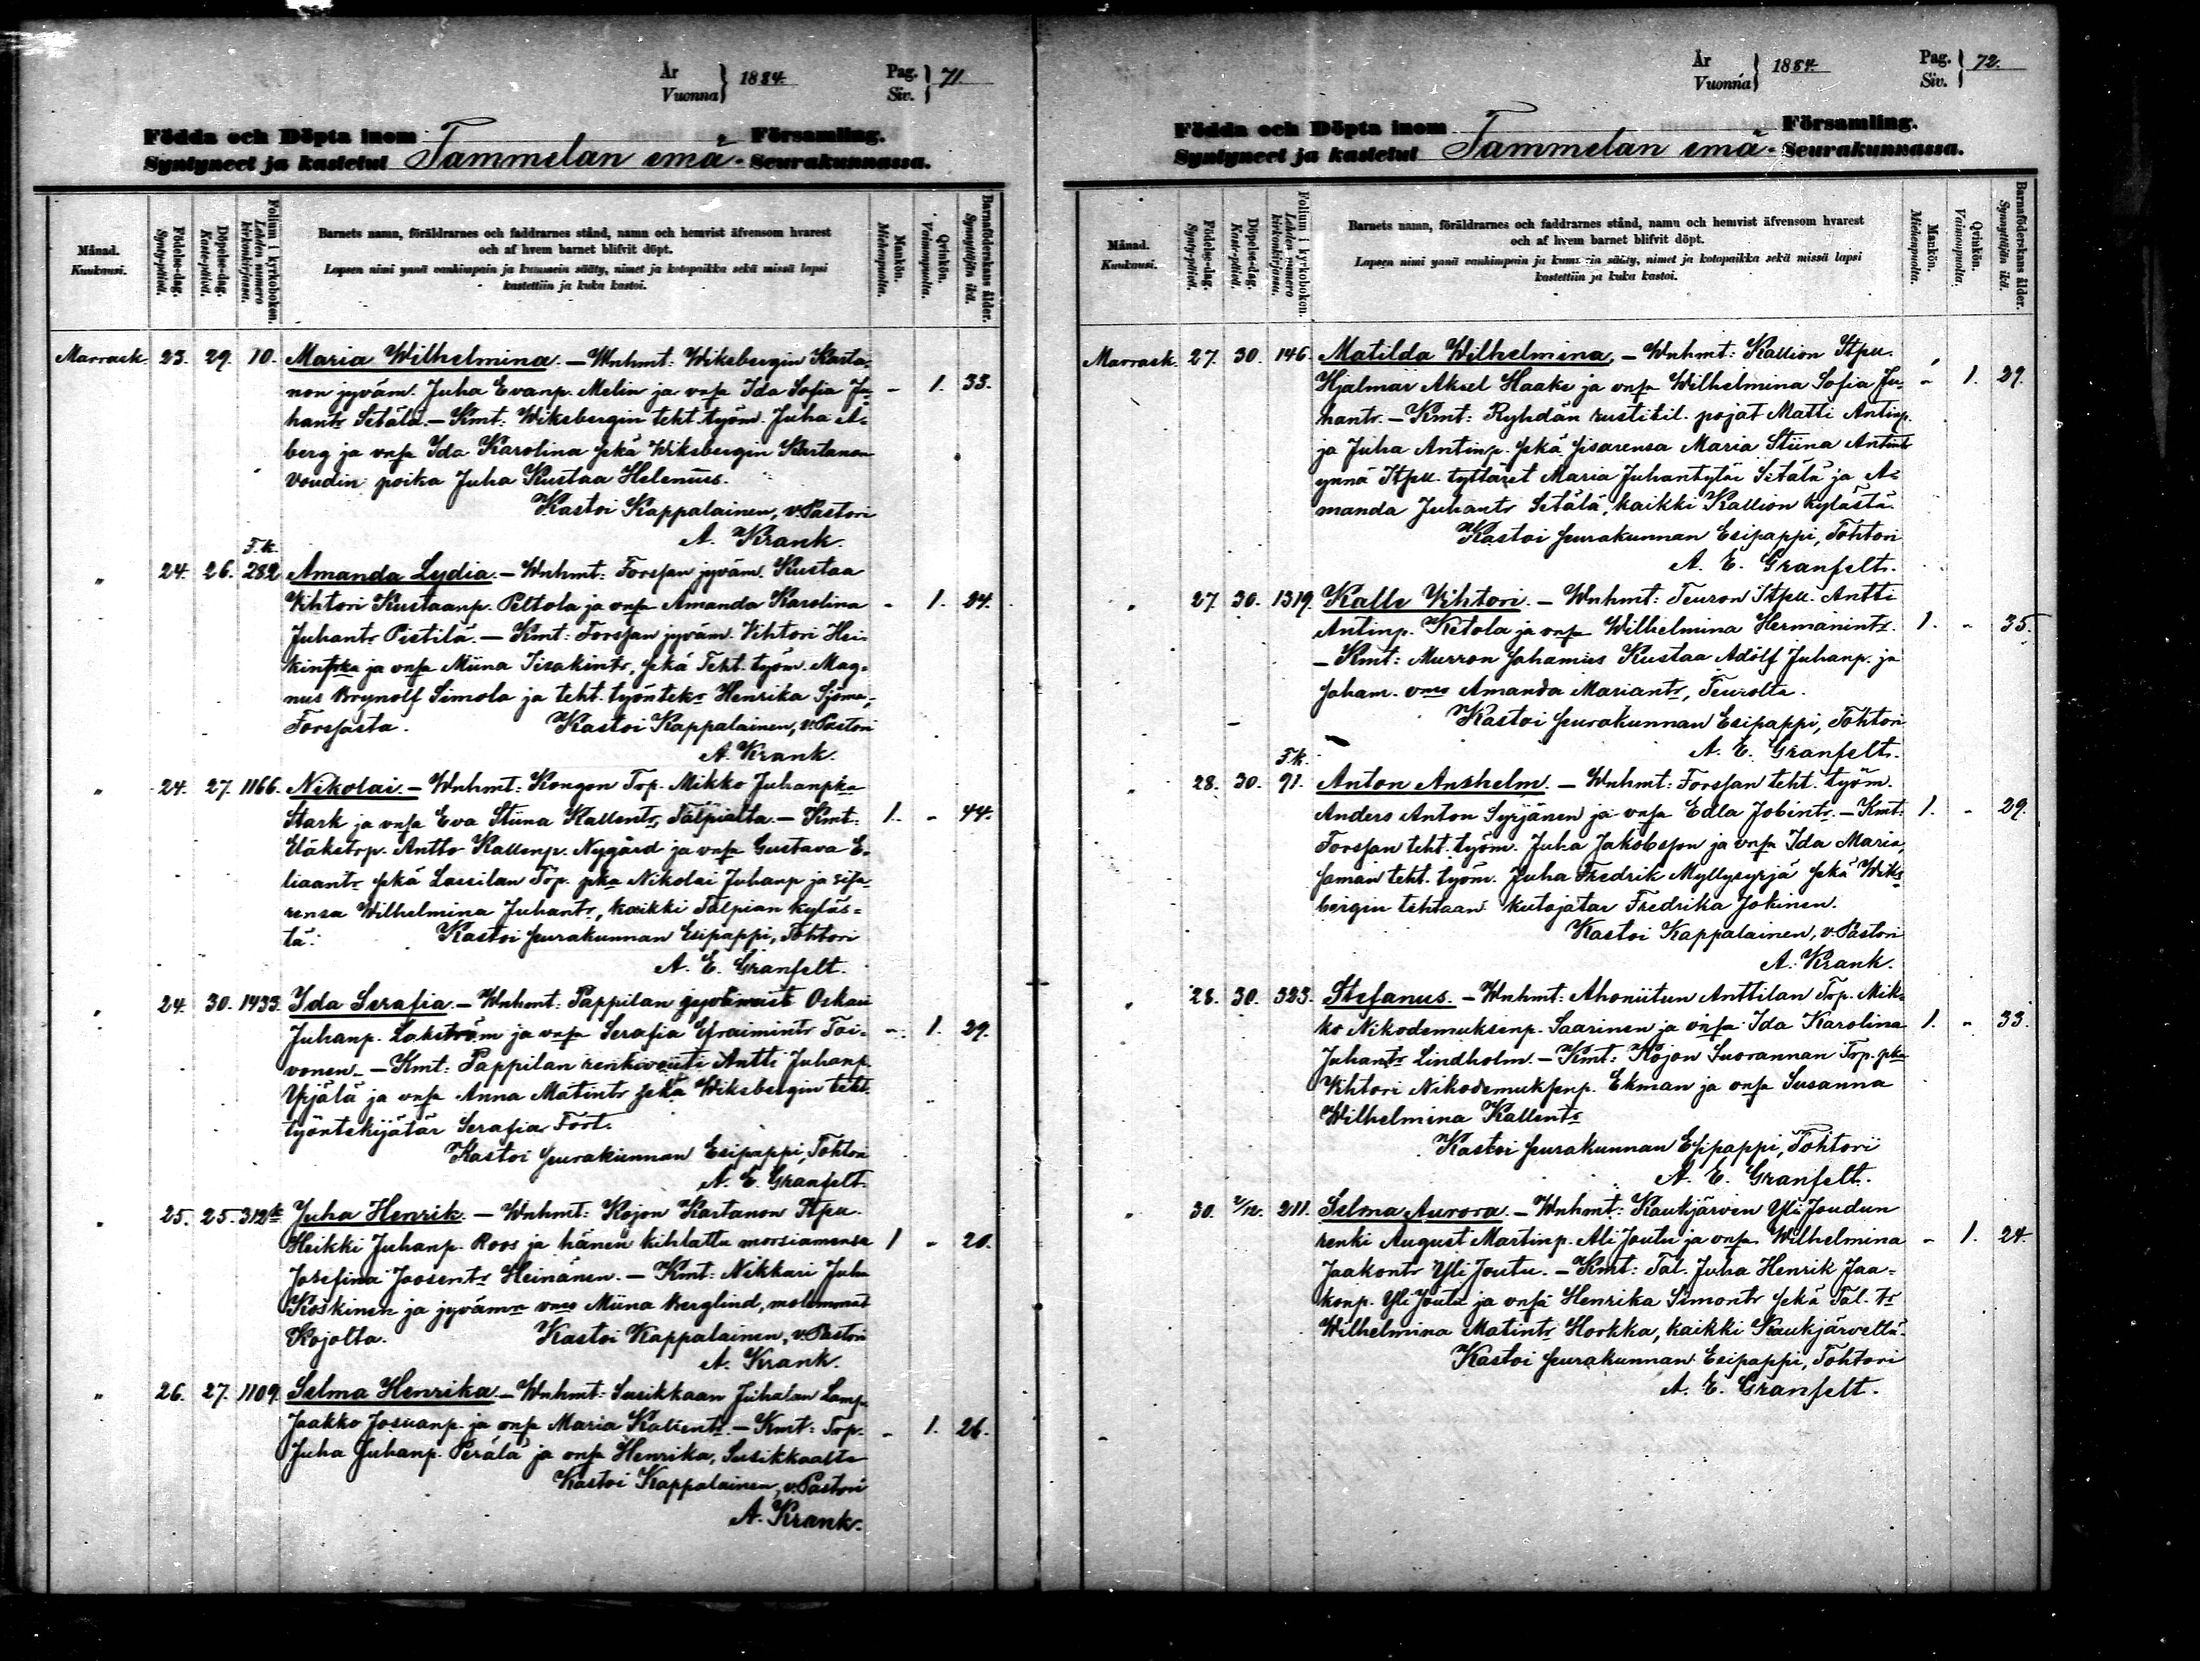 År
Vuonna } 1884. Pag.
Siv. } 71.
Födda och Döpta inom Församling.
Syntyneet ja kastetut Tammelan emä- Seurakunnassa.
Månad.
Kuukausi.
Födelse-dag.
Synty-päivä.
Döpelse-dag.
Kaste-päivä.
Folium i kyrkoboken.
Lehden numero
kirkonkirjassa.
Barnets namn, föräldrarnes och faddrarnes stånd, namn och hemvist äfvensom hvarest
och af hvem barnet blifvit döpt.
Lapsen nimi ynnä vanhimpain ja kummein sääty, nimet ja kotopaikka sekä missä lapsi
kastettiin ja kuka kastoi.
Mankön.
Miehenpuolta.
Qvinkön.
Vaimonpuolta.
Barnaföderskans ålder.
Synnyttäjän ikä.
Marrask. 23. 29. 10. Maria Wilhelmina. — Wnhmt: Wiksbergin Karta-
non jyväm. Juha Evanp. Melin ja vnsa Ida Sofia Ju- - 1. 33.
hantr Setälä. — Kmt: Wiksbergin teht. työm. Juha A-
berg ja vnsa Ida Karolina sekä Wiksbergin Kartanon
voudin poika Juha Kustaa Helenius.
Kastoi Kappalainen, v. Pastori
A. Krank.
F. k.
" 24. 26. 282 Amanda Lydia. — Wnhmt: Forssan jyväm. Kustaa
Vihtori Kustaanp. Peltola ja vnsa Amanda Karolina - 1. 24.
Juhantr Pietilä. — Kmt: Forssan jyväm. Vihtori Hei-
ja vnsa Miina Iisakintr, sekä Teht. työm. Mag-
nus Brynolf Simola ja teht. työntekr Henrika Sjöman,
Forssasta. Kastoi Kappalainen, v. Pastori
A. Krank.
" 24. 27. 1166. Nikolai. — Wnhmt: Kongon Trp. Mikko Juhanpka
Stark ja vnsa Eva Stiina Kallentr, Talpialta. — Kmt: 1. - 44.
Eläketrp. Antto Kallenp. Nygård ja vnsa Gustava E-
liaantr sekä Lassilan Trp. pka Nikolai Juhanp ja sisa-
rensa Wilhelmina Juhantr, kaikki Talpian kyläs-
tä. Kastoi seurakunnan Esipappi, Tohtori
A. E. Granfelt.
" 24. 30. 1433. Ida Serafia. — Wnhmt: Pappilan Oskari
Juhanp. Lokström ja vnsa Serafia Efraimintr Toi- - 1. 29.
vonen. — Kmt: Pappilan renkivouti Antti Juhanp.
Yrjälä ja vnsa Anna Matintr sekä Wiksbergin teht.
työntekijätär Serafia Fort.
Kastoi seurakunnan Esipappi, Tohtori
A. E. Granfelt.
" 25. 25. 312 Juha Henrik. — Wnhmt: Kojon Kartanon Itpu.
Heikki Juhanp. Roos ja hänen kihlattu morsiamensa 1 - 20.
Josefina Joosentr Heinänen. — Kmt: Nikkari Juha
Koskinen ja jyvämn vmo Miina Berglind, molemmat
Kojolta. Kastoi Kappalainen, v. Pastori
A. Krank.
" 26. 27. 1109. Selma Henrika. — Wnhmt: Susikkaan Juhalan Lamp.
Jaakko Josuanp. ja vnsa Maria Kallentr. — Kmt: Trp. - 1. 26.
Juha Juhanp. Perälä ja vnsa Henrika, Susikkaalta
Kastoi Kappalainen, v. Pastori
A. Krank.
År
Vuonna } 1884. Pag.
Siv. } 72.
Födda och Döpta inom Församling.
Syntyneet ja kastetut Tammelan emä- Seurakunnassa.
Månad.
Kuukausi.
Födelse-dag.
Synty-päivä.
Döpelse-dag.
Kaste-päivä.
Folium i kyrkoboken.
Lehden numero
kirkonkirjassa.
Barnets namn, föräldrarnes och faddrarnes stånd, namn och hemvist äfvensom hvarest
och af hvem barnet blifvit döpt.
Lapsen nimi ynnä vanhimpain ja kummein sääty, nimet ja kotopaikka sekä missä lapsi
kastettiin ja kuka kastoi.
Mankön.
Miehenpuolta.
Qvinkön.
Vaimonpuolta.
Barnaföderskans ålder.
Synnyttäjän ikä.
Marrask. 27. 30. 146. Matilda Wilhelmina. — Wnhmt: Kallion Itpu.
Hjalmar Aksel Haake ja vnsa Wilhelmina Sofia Ju- - 1. 29.
hantr. — Kmt: Ryhdän rustitil. pojat Matti Antinp.
ja Juha Antinp. sekä sisarensa Maria Stiina Antintr
ynnä Itpu. tyttäret Maria Juhantytär Setälä ja A-
manda Juhantr Setälä, kaikki Kallion kylästä.
Kastoi seurakunnan Esipappi, Tohtori
A. E. Granfelt.
" 27. 30. 1319. Kalle Vihtori. — Wnhmt: Teuron Itpu. Antti
Antinp. Ketola ja vnsa Wilhelmina Hermanintr. 1. - 35.
— Kmt: Murron sahamies Kustaa Adolf Juhanp. ja
saham. vmo Amanda Mariantr, Teurolta.
Kastoi seurakunnan Esipappi, Tohtori
A. E. Granfelt.
F. k.
" 28. 30. 91. Anton Anshelm. — Wnhmt: Forssan teht. työm.
Anders Anton Syrjänen ja vnsa Edla Jobintr. — Kmt: 1. - 29.
Forssan teht. työm. Juha Jakobsson ja vnsa Ida Maria,
saman teht. työm. Juha Fredrik Myllysyrjä sekä Wiks-
bergin tehtaan kutojatar Fredrika Jokinen.
Kastoi Kappalainen, v. Pastori
A. Krank.
" 28. 30. 323. Stefanus. — Wnhmt: Ahoniitun Anttilan Trp. Mik-
ko Nikodemuksenp. Saarinen ja vnsa Ida Karolina 1. - 33.
Juhantr Lindholm. — Kmt: Kojon Suorannan Trp. pka
Vihtori Nikodemuksenp. Ekman ja vnsa Susanna
Wilhelmina Kallentr
Kastoi seurakunnan Esipappi, Tohtori
A. E. Granfelt.
" 30. 2/12. 211. Selma Aurora. — Wnhmt: Kaukjärven Yli Joudun
renki August Martinp. Ali Joutu ja vnsa Wilhelmina - 1. 24.
Jaakontr Yli Joutu. — Kmt: Tal. Juha Henrik Jaa-
konp. Yli Joutu ja vnsa Henrika Simontr sekä Tal. tr
Wilhelmina Matintr Horkka, kaikki Kaukjärveltä.
Kastoi seurakunnan Esipappi, Tohtori
A. E. Granfelt.